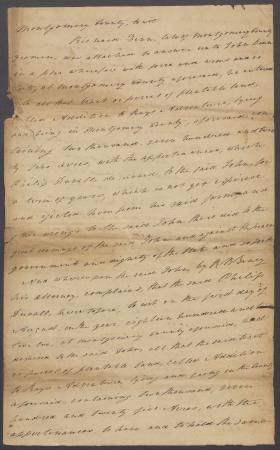 Montgomery County, to wit
Richard Fenn, late of Montgomery County
yeoman, was attached to answer unto John Denn
in a plea wherefore with force and arms and so
forth, at Montgomery County aforesaid, he entered
into all that tract or parcel of plantable land,
called Addition to Rays Adventure, lying
and being in Montgomery County, aforesaid, con-
taining two thousand, seven hundred and twen
ty five acres, with the appertenances, which
Philip Duvall demised to the said John, for
a term of years, which is not yet expired,
and ejected him from his said farm and
other wrongs to the said John there did to the
great damage of the said John and against the peace
government and dignity of the State and so forth
And whereupon the said John, by
his attorney, complains, that the said Philip
Duvall, heretofore, to wit on the first day of
August, in the year eighteen hundred and
at Montgomery County aforesaid, had
demised to the said John, all that the said tract
or parcel of plantable land, called Addition
to Rays Adventure, lying and being in the County
aforesaid, containing two thousand, seven
hundred and twenty five Acres, with the
appertenances to have and to hold the same